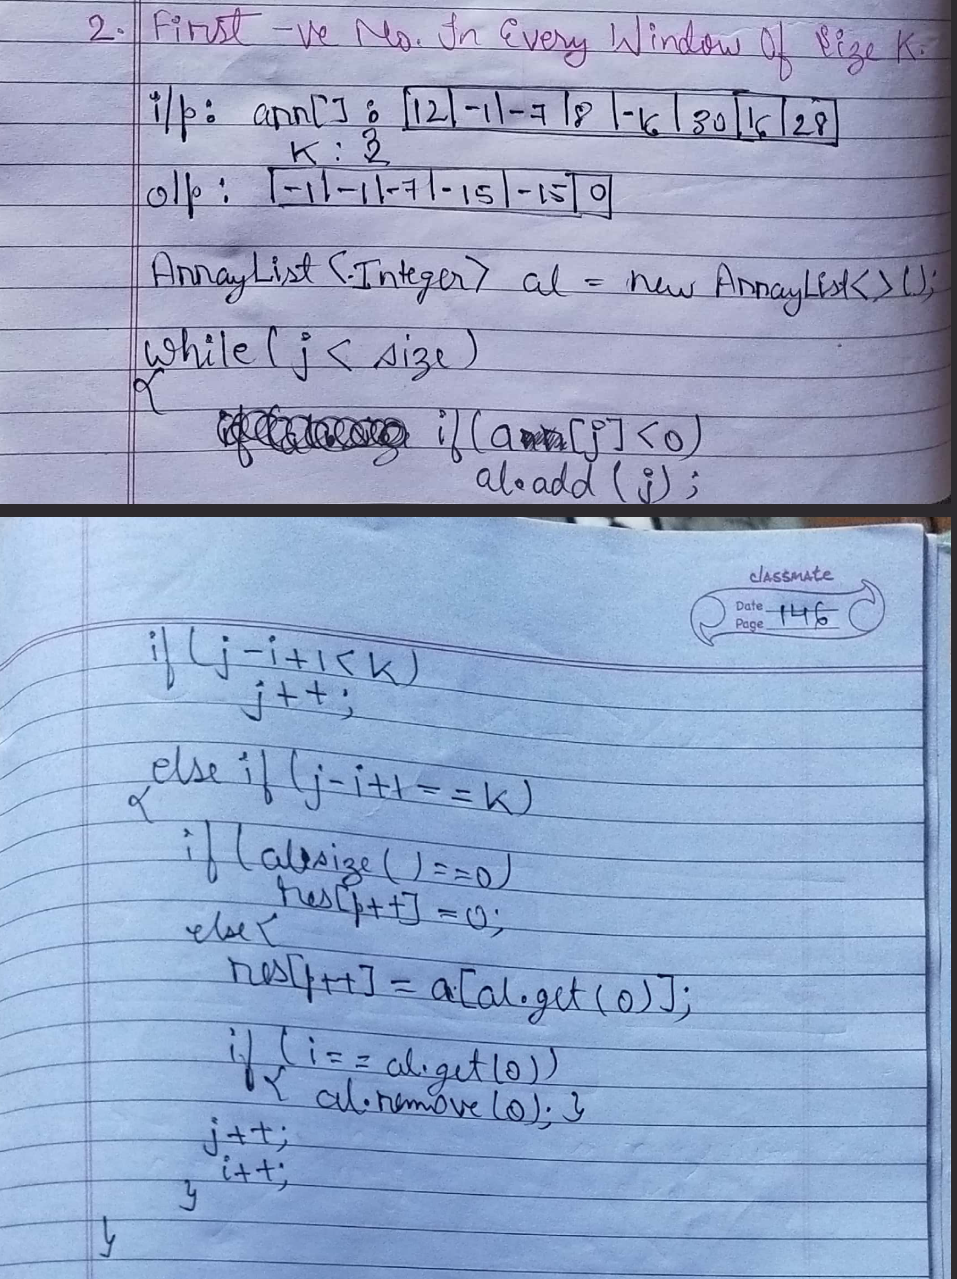 2. First -ve No. In Every Window Of Size K.
i/p: arr[] : 12 -1 -7 8 -16 30 16 28
K : 3
o/p : -1 -1 -7 -15 -15 0
ArrayList <Integer> al = new ArrayList<>();
while ( j < size )
{
if (a[j] < 0)
al.add (j);
classmate
Date
Page 146
if (j-i+1 < K)
j++;
else if (j-i+1 == K)
{
if (al.size() == 0)
res[p++] = 0;
else {
res[p++] = a[al.get(0)];
if (i == al.get(0))
{ al.remove(0); }
j++;
i++;
}
}